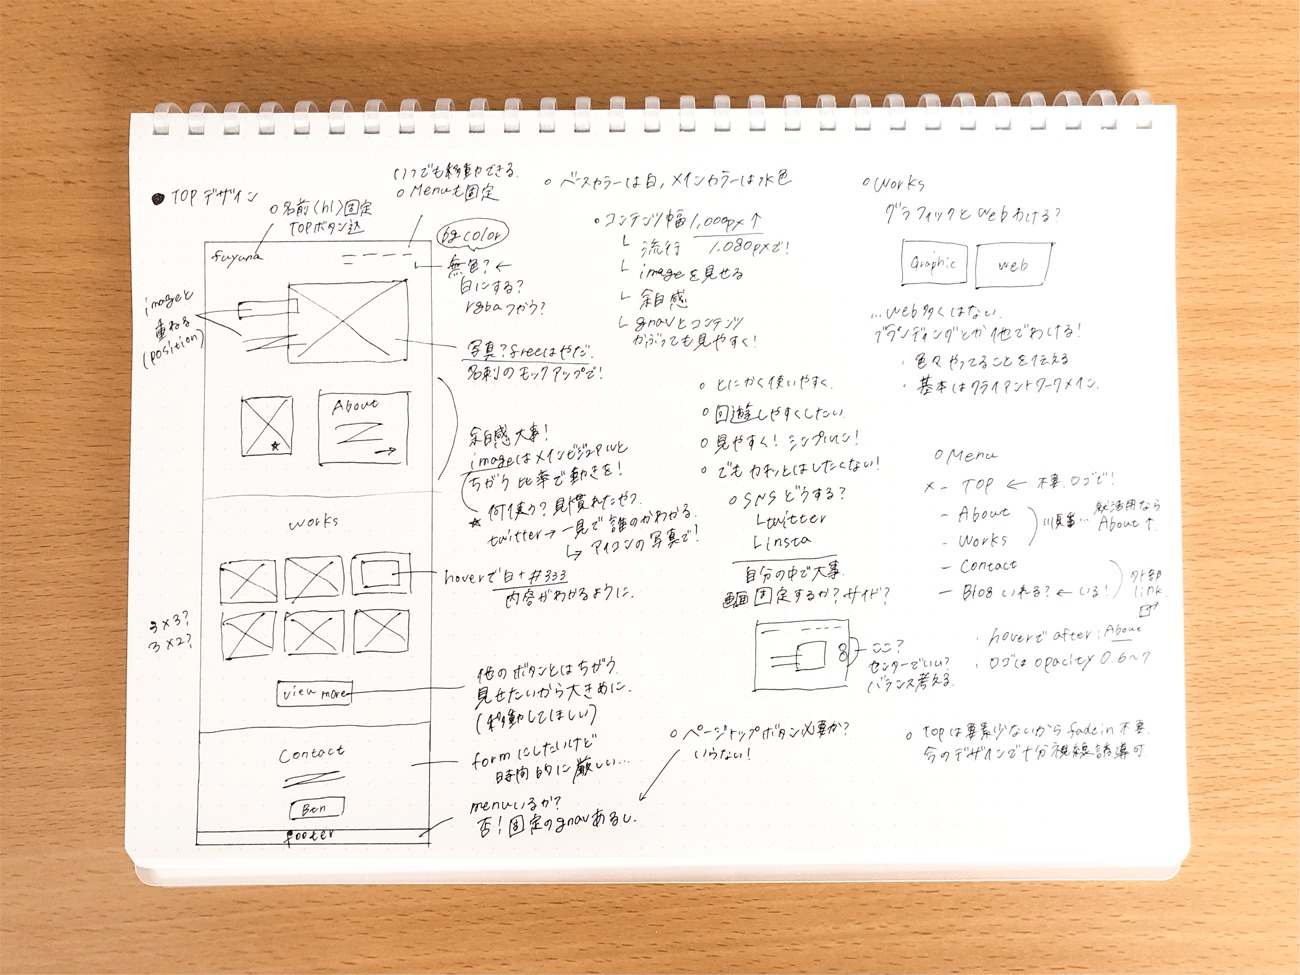 ● TOPデザイン
○ 名前(h1)固定
TOPボタン込
いつでも移動できる.
○ Menuも固定
fuyuna
bg color
無色? ←
白にする?
rgbaつかう?
imageと
重ねる
(position)
写真? freeはやだ.
名刺のモックアップで!
About
★
余白感大事!
imageはメインビジュアルと
ちがう比率で動きを!
★ 何使う? 見慣れたやつ.
twitter→一見で誰のかわかる.
↳ アイコンの写真で!
works
hoverで白+#333
内容がわかるように.
3×3?
3×2?
view more
他のボタンとはちがう.
見せたいから大きめに.
(移動してほしい)
Contact
Btn
formにしたいけど
時間的に厳しい…
footer
menuいるか?
否! 固定のgnavあるし.
○ ベースカラーは白, メインカラーは水色
○ コンテンツ幅 1,000px↑
└ 流行 1,080pxで!
└ imageを見せる
└ 余白感
└ gnavとコンテンツ
かぶっても見やすく!
○ とにかく使いやすく.
○ 回遊しやすくしたい.
○ 見やすく! シンプルに!
○ でもカチッとはしたくない!
○ SNSどうする?
└ twitter
└ insta
自分の中で大事.
画面固定するか? サイド?
ここ?
センターでいい?
バランス考える.
○ ページトップボタン必要か?
いらない!
○ Works
グラフィックとwebわける?
Graphic
web
…web多くはない.
ブランディングとか他でわける!
・色々やってることを伝える
・基本はクライアントワークメイン.
○ Menu
×- TOP ← 不要. ロゴで!
- About
- Works
順番… 就活用なら
About↑.
- Contact
- Blogいれる? ← いる!
外部
link.
・hoverで after: About
・ロゴは opacity 0.6~7
○ TOPは要素少ないから fadein 不要.
今のデザインで十分視線誘導可